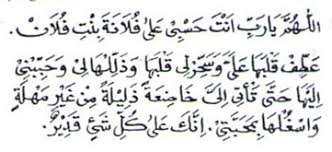 اَللّٰهُمَّ يَارَبِّ اَنْتَ حَسْبِيْ عَلٰى فُلَانَةَ بِنْتِ فُلَانٍ.
اَعْطِفْ قَلْبَهَا عَلَيَّ وَسَخِّرْلِيْ قَلْبَهَا وَذَلِّلْهَالِيْ وَحَبِّبْنِيْ
اِلَيْهَا حَتّٰى تَأْتِيَ اِلَيَّ خَاضِعَةً ذَلِيْلَةً مِنْ غَيْرِ مَهْلَةٍ
وَاشْغُلْهَا بِمَحَبَّتِيْ. اِنَّكَ عَلٰى كُلِّ شَيْءٍ قَدِيْرٌ.